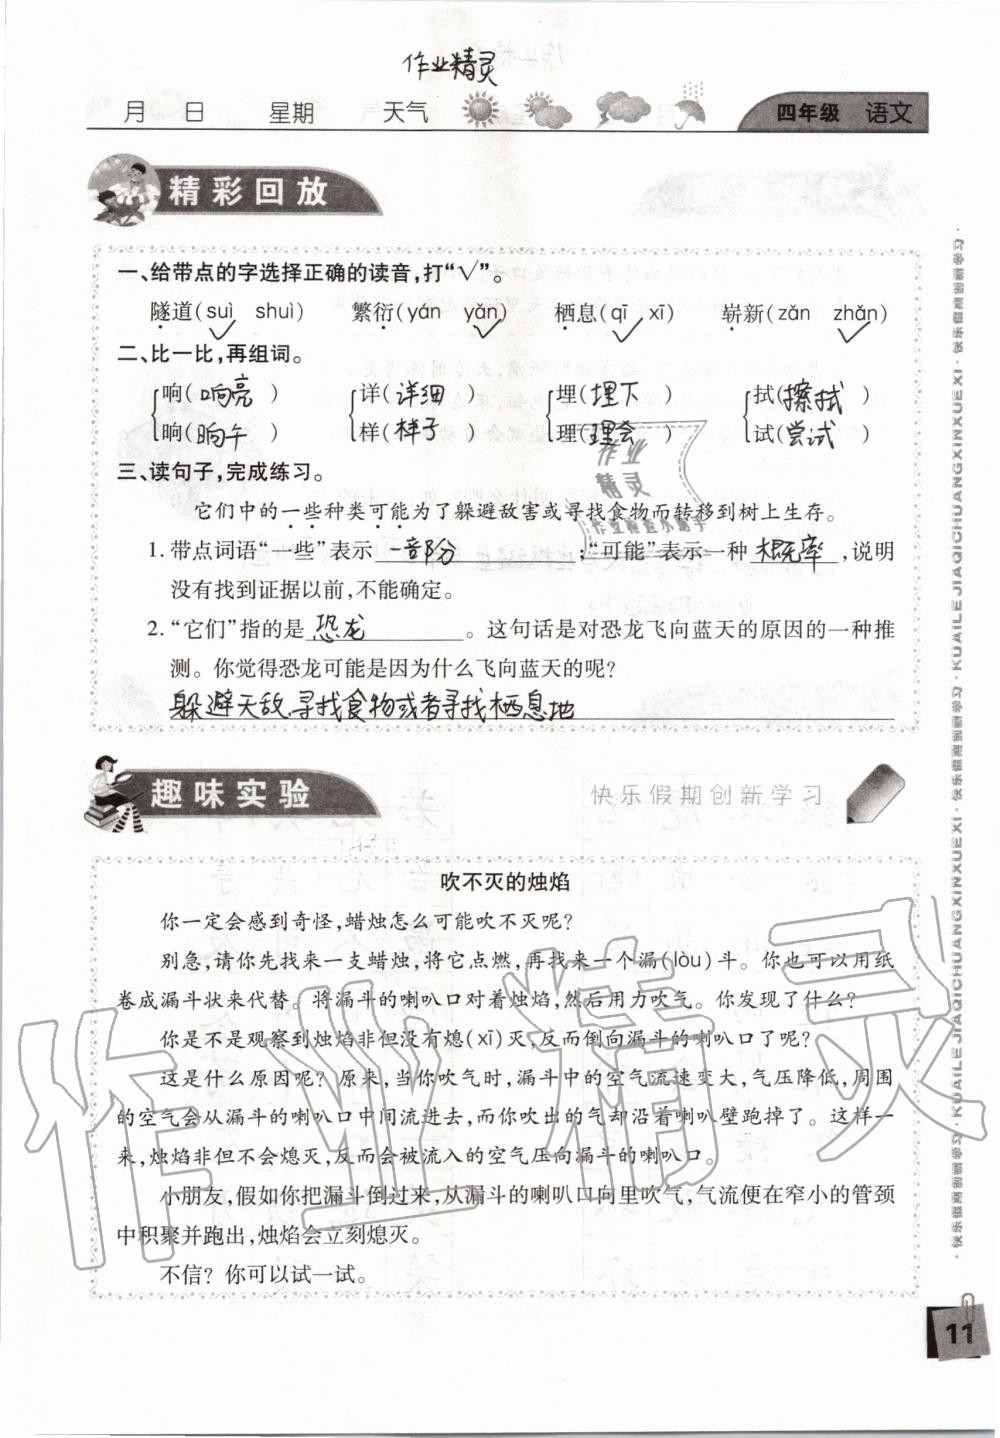 作业精灵
月 日 星期 天气 四年级 语文
精彩回放
一、给带点的字选择正确的读音,打“√”。
隧道(suì shuì) 繁衍(yán yǎn) 栖息(qī xī) 崭新(zǎn zhǎn)
二、比一比,再组词。
响(响亮) 详(详细) 埋(埋下) 拭(擦拭)
晌(晌午) 样(样子) 理(理会) 试(尝试)
三、读句子,完成练习。
它们中的一些种类可能为了躲避敌害或寻找食物而转移到树上生存。
1. 带点词语“一些”表示 一部分 ;“可能”表示一种 概率 ,说明
没有找到证据以前,不能确定。
2. “它们”指的是 恐龙 。这句话是对恐龙飞向蓝天的原因的一种推
测。你觉得恐龙可能是因为什么飞向蓝天的呢?
躲避天敌、寻找食物或者寻找栖息地
趣味实验
快乐假期创新学习
吹不灭的烛焰
你一定会感到奇怪,蜡烛怎么可能吹不灭呢?
别急,请你先找来一支蜡烛,将它点燃,再找来一个漏(lòu)斗。你也可以用纸
卷成漏斗状来代替。将漏斗的喇叭口对着烛焰,然后用力吹气。你发现了什么?
你是不是观察到烛焰非但没有熄(xī)灭,反而倒向漏斗的喇叭口了呢?
这是什么原因呢?原来,当你吹气时,漏斗中的空气流速变大,气压降低,周围
的空气会从漏斗的喇叭口中间流进去,而你吹出的气却沿着喇叭壁跑掉了。这样一
来,烛焰非但不会熄灭,反而会被流入的空气压向漏斗的喇叭口。
小朋友,假如你把漏斗倒过来,从漏斗的喇叭口向里吹气,气流便在窄小的管颈
中积聚并跑出,烛焰会立刻熄灭。
不信?你可以试一试。
·快乐假期创新学习·KUAILE JIAQICHUANGXINXUEXI·快乐假期创新学习·KUAILE JIAQICHUANGXINXUEXI·快乐假期创新学习·
11
作业
精灵
作业精灵